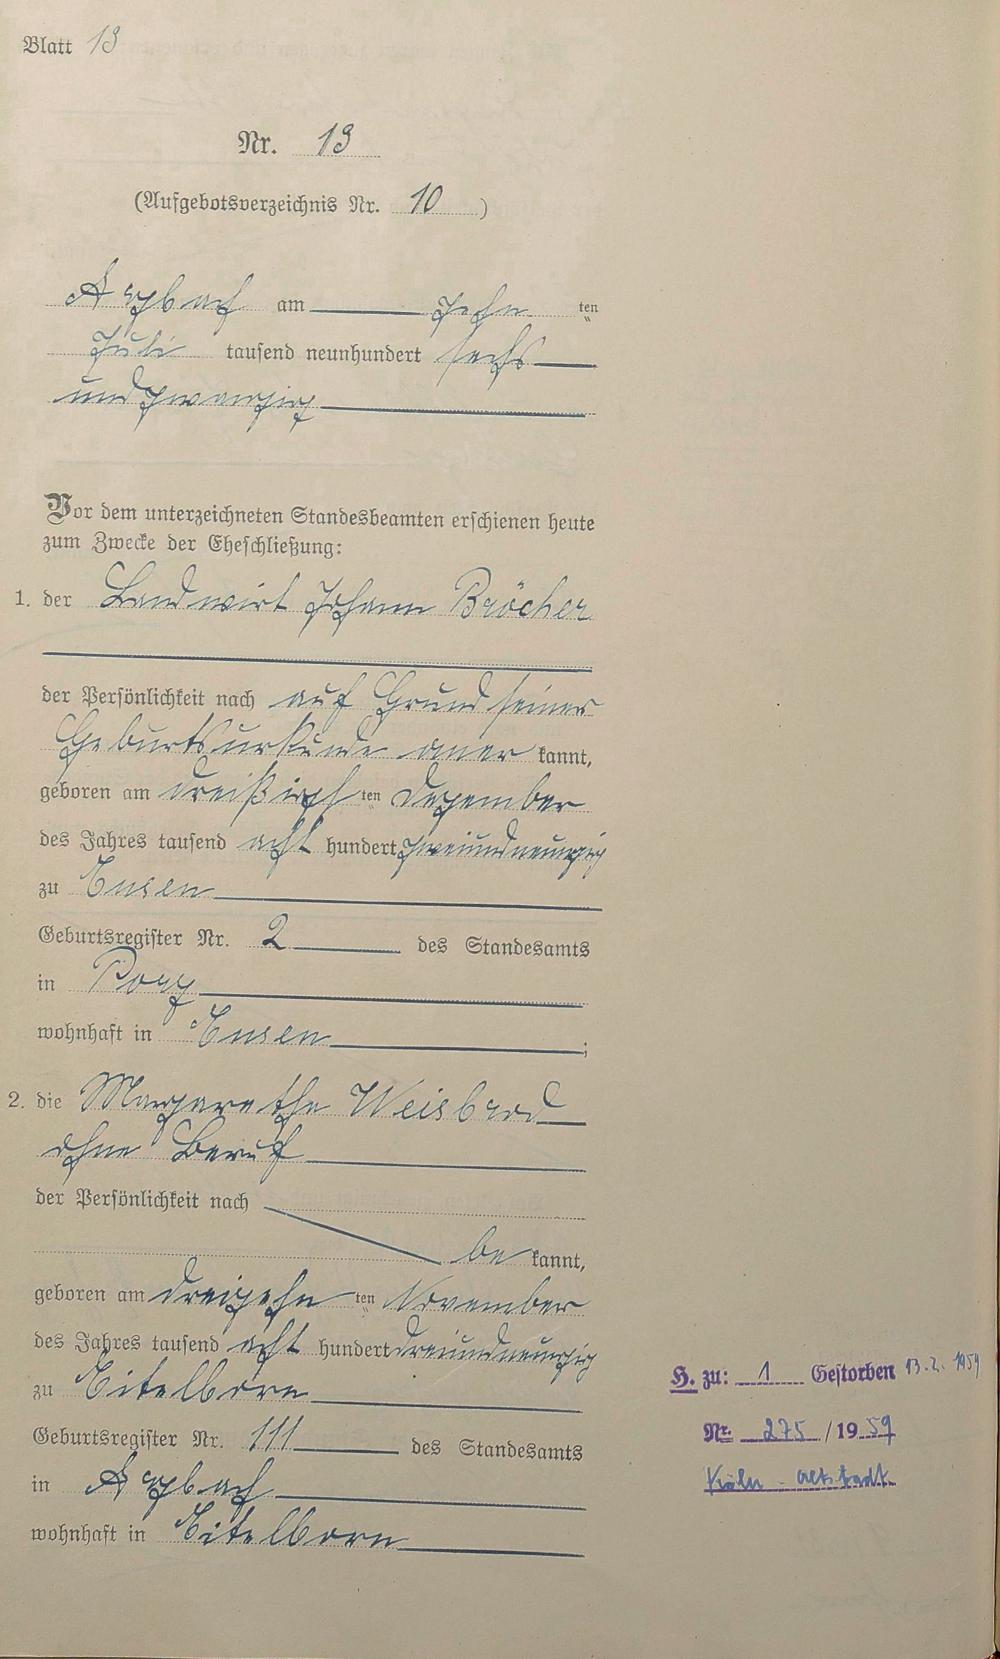 Blatt 13
Nr. 13
(Aufgebotsverzeichnis Nr. 10)
Arzbach am zehn ten
Juli tausend neunhundert sechs
undzwanzig
Vor dem unterzeichneten Standesbeamten erschienen heute
zum Zwecke der Eheschließung:
1. der Landwirt Johann Bröcher
der Persönlichkeit nach auf Grund seiner
Geburtsurkunde aner kannt,
geboren am dreißigs ten Dezember
des Jahres tausend acht hundert zweiundneunzig
zu Ensen
Geburtsregister Nr. 2 des Standesamts
in Porz
wohnhaft in Ensen ;
2. die Margarethe Weisbrod
ohne Beruf
der Persönlichkeit nach
be kannt,
geboren am dreizehn ten November
des Jahres tausend acht hundert dreiundneunzig
zu Eitelborn
Geburtsregister Nr. 111 des Standesamts
in Arzbach
wohnhaft in Eitelborn
H. zu: 1 Gestorben 13.2.1959
Nr. 275/1959
Köln-Altstadt